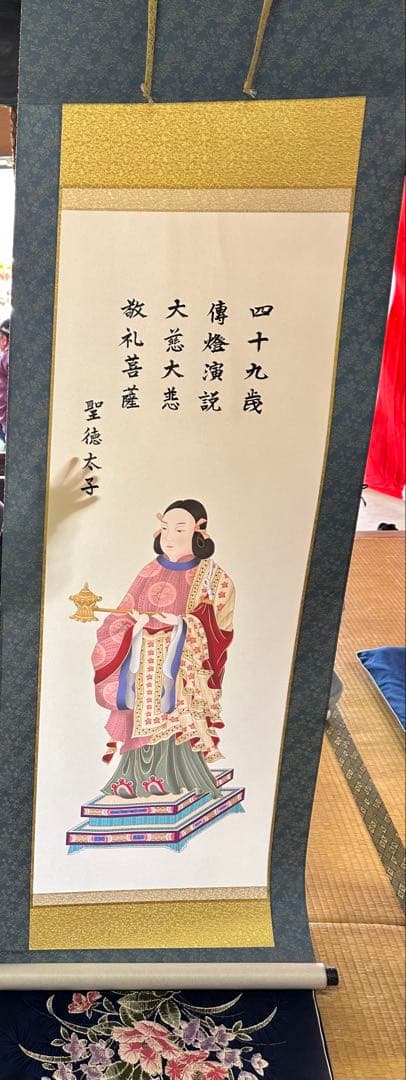 四十九歲
傳燈演説
大慈大悲
敬礼菩薩
聖徳太子